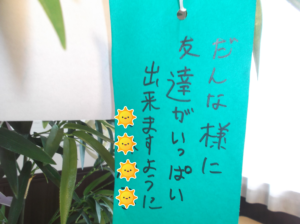 だんな様に
友達がいっぱい
出来ますように